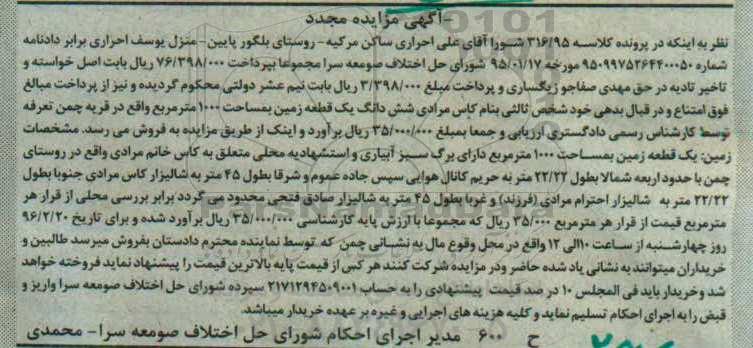 آگهی مزایده مجدد
نظر به اینکه در پرونده کلاسه ۳۱۶/۹۵ شورا آقای علی احراری ساکن مرکیه - روستای بلگور پایین - منزل یوسف احراری برابر دادنامه
شماره ۹۵۰۹۹۷۵۲۶۴۴۰۰۰۵۰ مورخه ۹۵/۰۱/۱۷ شورای حل اختلاف صومعه سرا مجموعا بپرداخت ۷۶/۳۹۸/۰۰۰ ریال بابت اصل خواسته و
تاخیر تادیه در حق مهدی صفاجو زیگساری و پرداخت مبلغ ۳/۳۹۸/۰۰۰ ریال بابت نیم عشر دولتی محکوم گردیده و نیز از پرداخت مبالغ
فوق امتناع و در قبال بدهی خود شخص ثالثی بنام کاس مرادی شش دانگ یک قطعه زمین بمساحت ۱۰۰۰ مترمربع واقع در قریه چمن تعرفه
توسط کارشناس رسمی دادگستری ارزیابی و جمعا بمبلغ ۳۵/۰۰۰/۰۰۰ ریال برآورد و اینک از طریق مزایده به فروش می رسد. مشخصات
زمین: یک قطعه زمین بمساحت ۱۰۰۰ مترمربع دارای برگ سبز آبیاری و استشهادیه محلی متعلق به کاس خانم مرادی واقع در روستای
چمن با حدود اربعه شمالا بطول ۲۲/۲۲ متر به حریم کانال هوایی سپس جاده عموم و شرقا بطول ۴۵ متر به شالیزار کاس مرادی جنوبا بطول
۲۲/۲۲ متر به شالیزار احترام مرادی (فرزند) و غربا بطول ۴۵ متر به شالیزار صادق فتحی محدود می گردد برابر بررسی محلی از قرار هر
مترمربع قیمت از قرار هر مترمربع ۳۵/۰۰۰ ریال که مجموعا با ارزش پایه کارشناسی ۳۵/۰۰۰/۰۰۰ ریال برآورد شده و برای تاریخ ۹۶/۲/۲۰
روز چهارشنبه از ساعت ۱۰الی ۱۲ واقع در محل وقوع مال به نشانی چمن که توسط نماینده محترم دادستان بفروش میرسد طالبین و
خریداران میتوانند به نشانی یاد شده حاضر ودر مزایده شرکت کنند هر کس از قیمت پایه بالاترین قیمت را پیشنهاد نماید فروخته خواهد
شد وخریدار باید فی المجلس ۱۰ در صد قیمت پیشنهادی را به حساب ۲۱۷۱۲۹۴۵۰۹۰۰۱ سپرده شورای حل اختلاف صومعه سرا واریز و
قبض را به اجرای احکام تسلیم نماید و کلیه هزینه های اجرایی و غیره بر عهده خریدار میباشد.
ح ۶۰۰ مدیر اجرای احکام شورای حل اختلاف صومعه سرا - محمدی